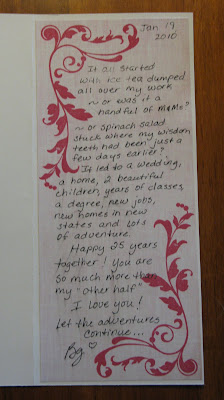 Jan 19
2010
It all started
with ice tea dumped
all over my work
~ or was it a
handful of m&ms?
~ or spinach salad
stuck where my wisdom
teeth had been just a
few days earlier?
It led to a wedding,
a home, 2 beautiful
children, years of classes,
a degree, new jobs,
new homes in new
states and lots
of adventure.
Happy 25 years
together! You are
so much more than
my "other half"
I love you!
Let the adventures
continue...